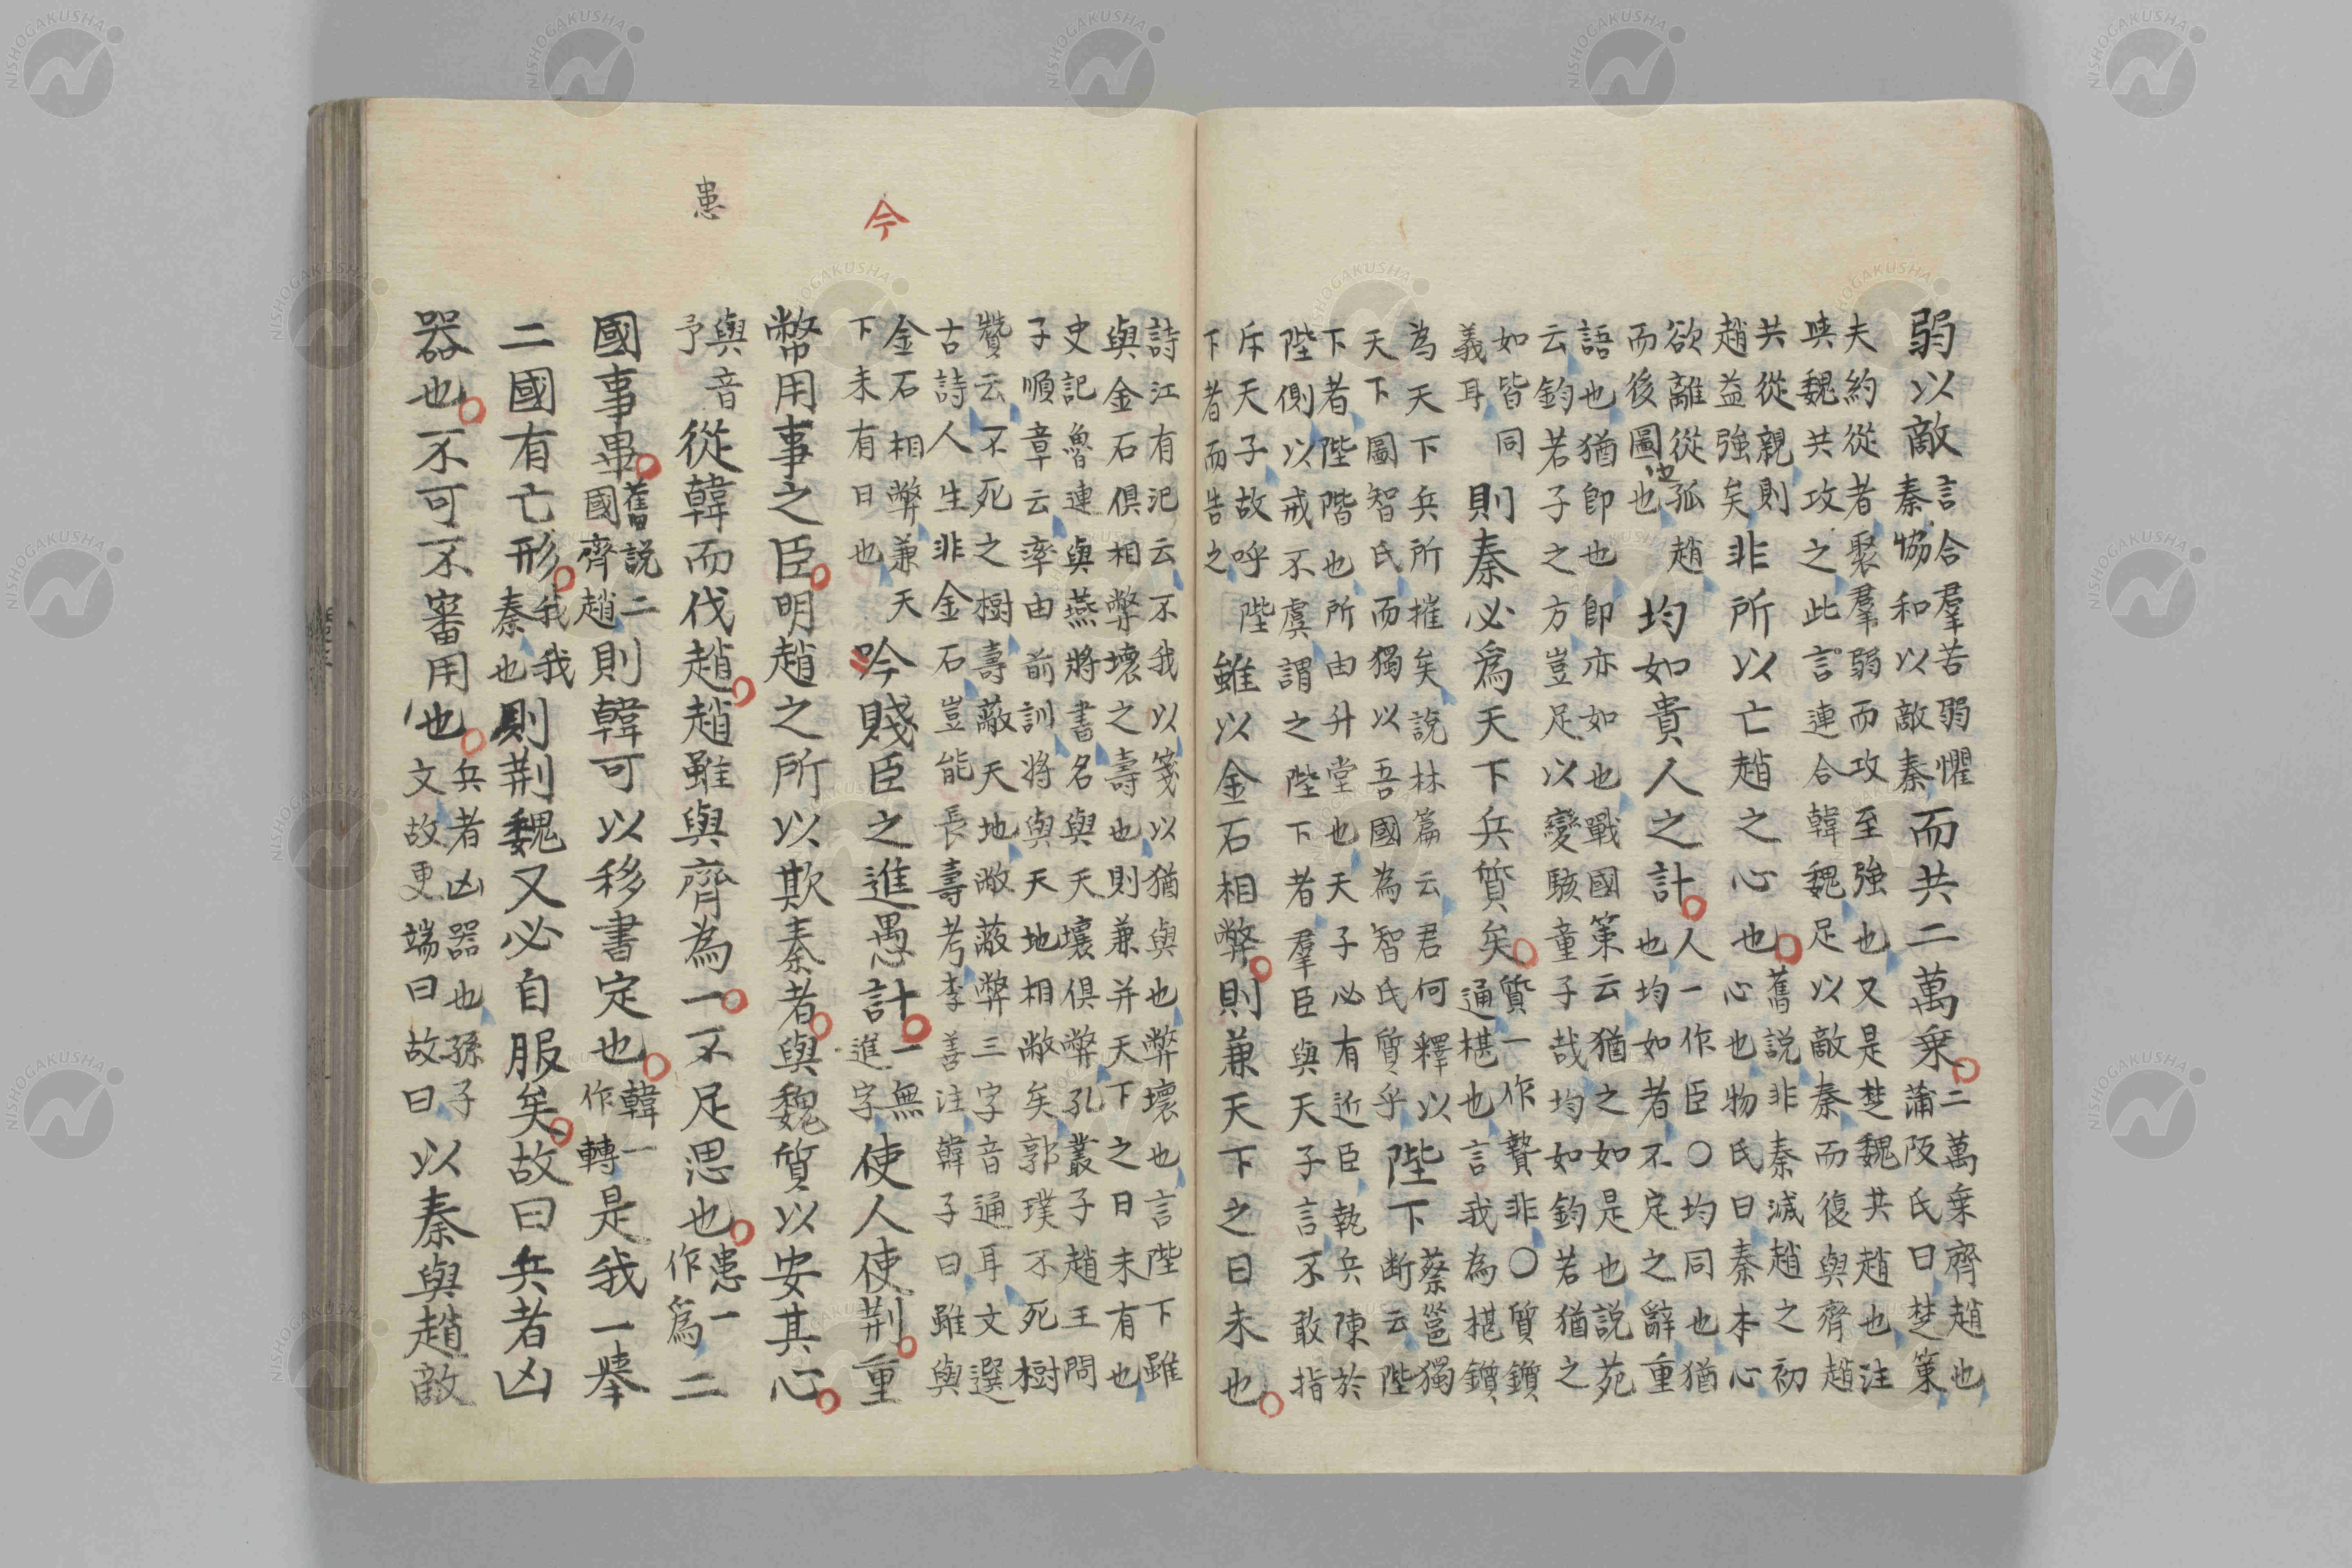 弱以敵
言合羣苦弱懼
秦協和以敵秦
而共二萬乗
二萬乗齊趙也
蒲阪氏曰楚策
夫約從者聚羣弱而攻至強也又是楚魏共趙也注
挾魏共攻之此言連合韓魏足以敵秦而復與齊趙
共從親則
趙益強矣
非所以亡趙之心也
舊說非秦滅趙之初
心也物氏曰秦本心
欲離從孤趙
而後圖也
均如貴人之計
人一作臣〇均同也猶
也均如者不定之辭重
語也猶即也即亦如也戰國策云猶之如是也說苑
云鈞若子之方豈足以變駭童子哉均如鈞若猶之
如皆同
義耳
則秦必爲天下兵質矣
質一作贄非〇質鑕
通椹也言我為椹鑕
為天下兵所摧矣說林篇云君何釋以
天下圖智氏而獨以吾國為智氏質乎
陛下
蔡邕獨
断云陛
下者陛階也所由升堂也天子必有近臣執兵陳於
陛側以戒不虞謂之陛下者羣臣與天子言不敢指
斥天子故呼陛
下者而告之
雖以金石相弊則兼天下之日未也
詩江有汜云不我以箋以猶與也弊壞也言陛下雖
與金石俱相弊壞之壽也則兼并天下之日未有也
史記魯連與燕將書名與天壤俱弊孔叢子趙王問
子順章云率由前訓將與天地相敝矣郭璞不死樹
贊云不死之樹壽蔽天地敝蔽弊三字音通耳文選
古詩人生非金石豈能長壽考李善注韓子曰雖與
金石相弊兼天
下未有日也
今
吟賤臣之進愚計
一無
進字
使人使荆重
幣用事之臣明趙之所以欺秦者與魏質以安其心
與音
予
從韓而伐趙趙雖與齊為一不足思也
患一
作為
二
患
國事畢
舊說二
國齊趙
則韓可以移書定也
韓一
作轉
是我一舉
二國有亡形
我我
秦也
則荆魏又必自服矣故曰兵者凶
器也不可不審用也
兵者凶器也孫子
文故更端曰故曰
以秦與趙敵